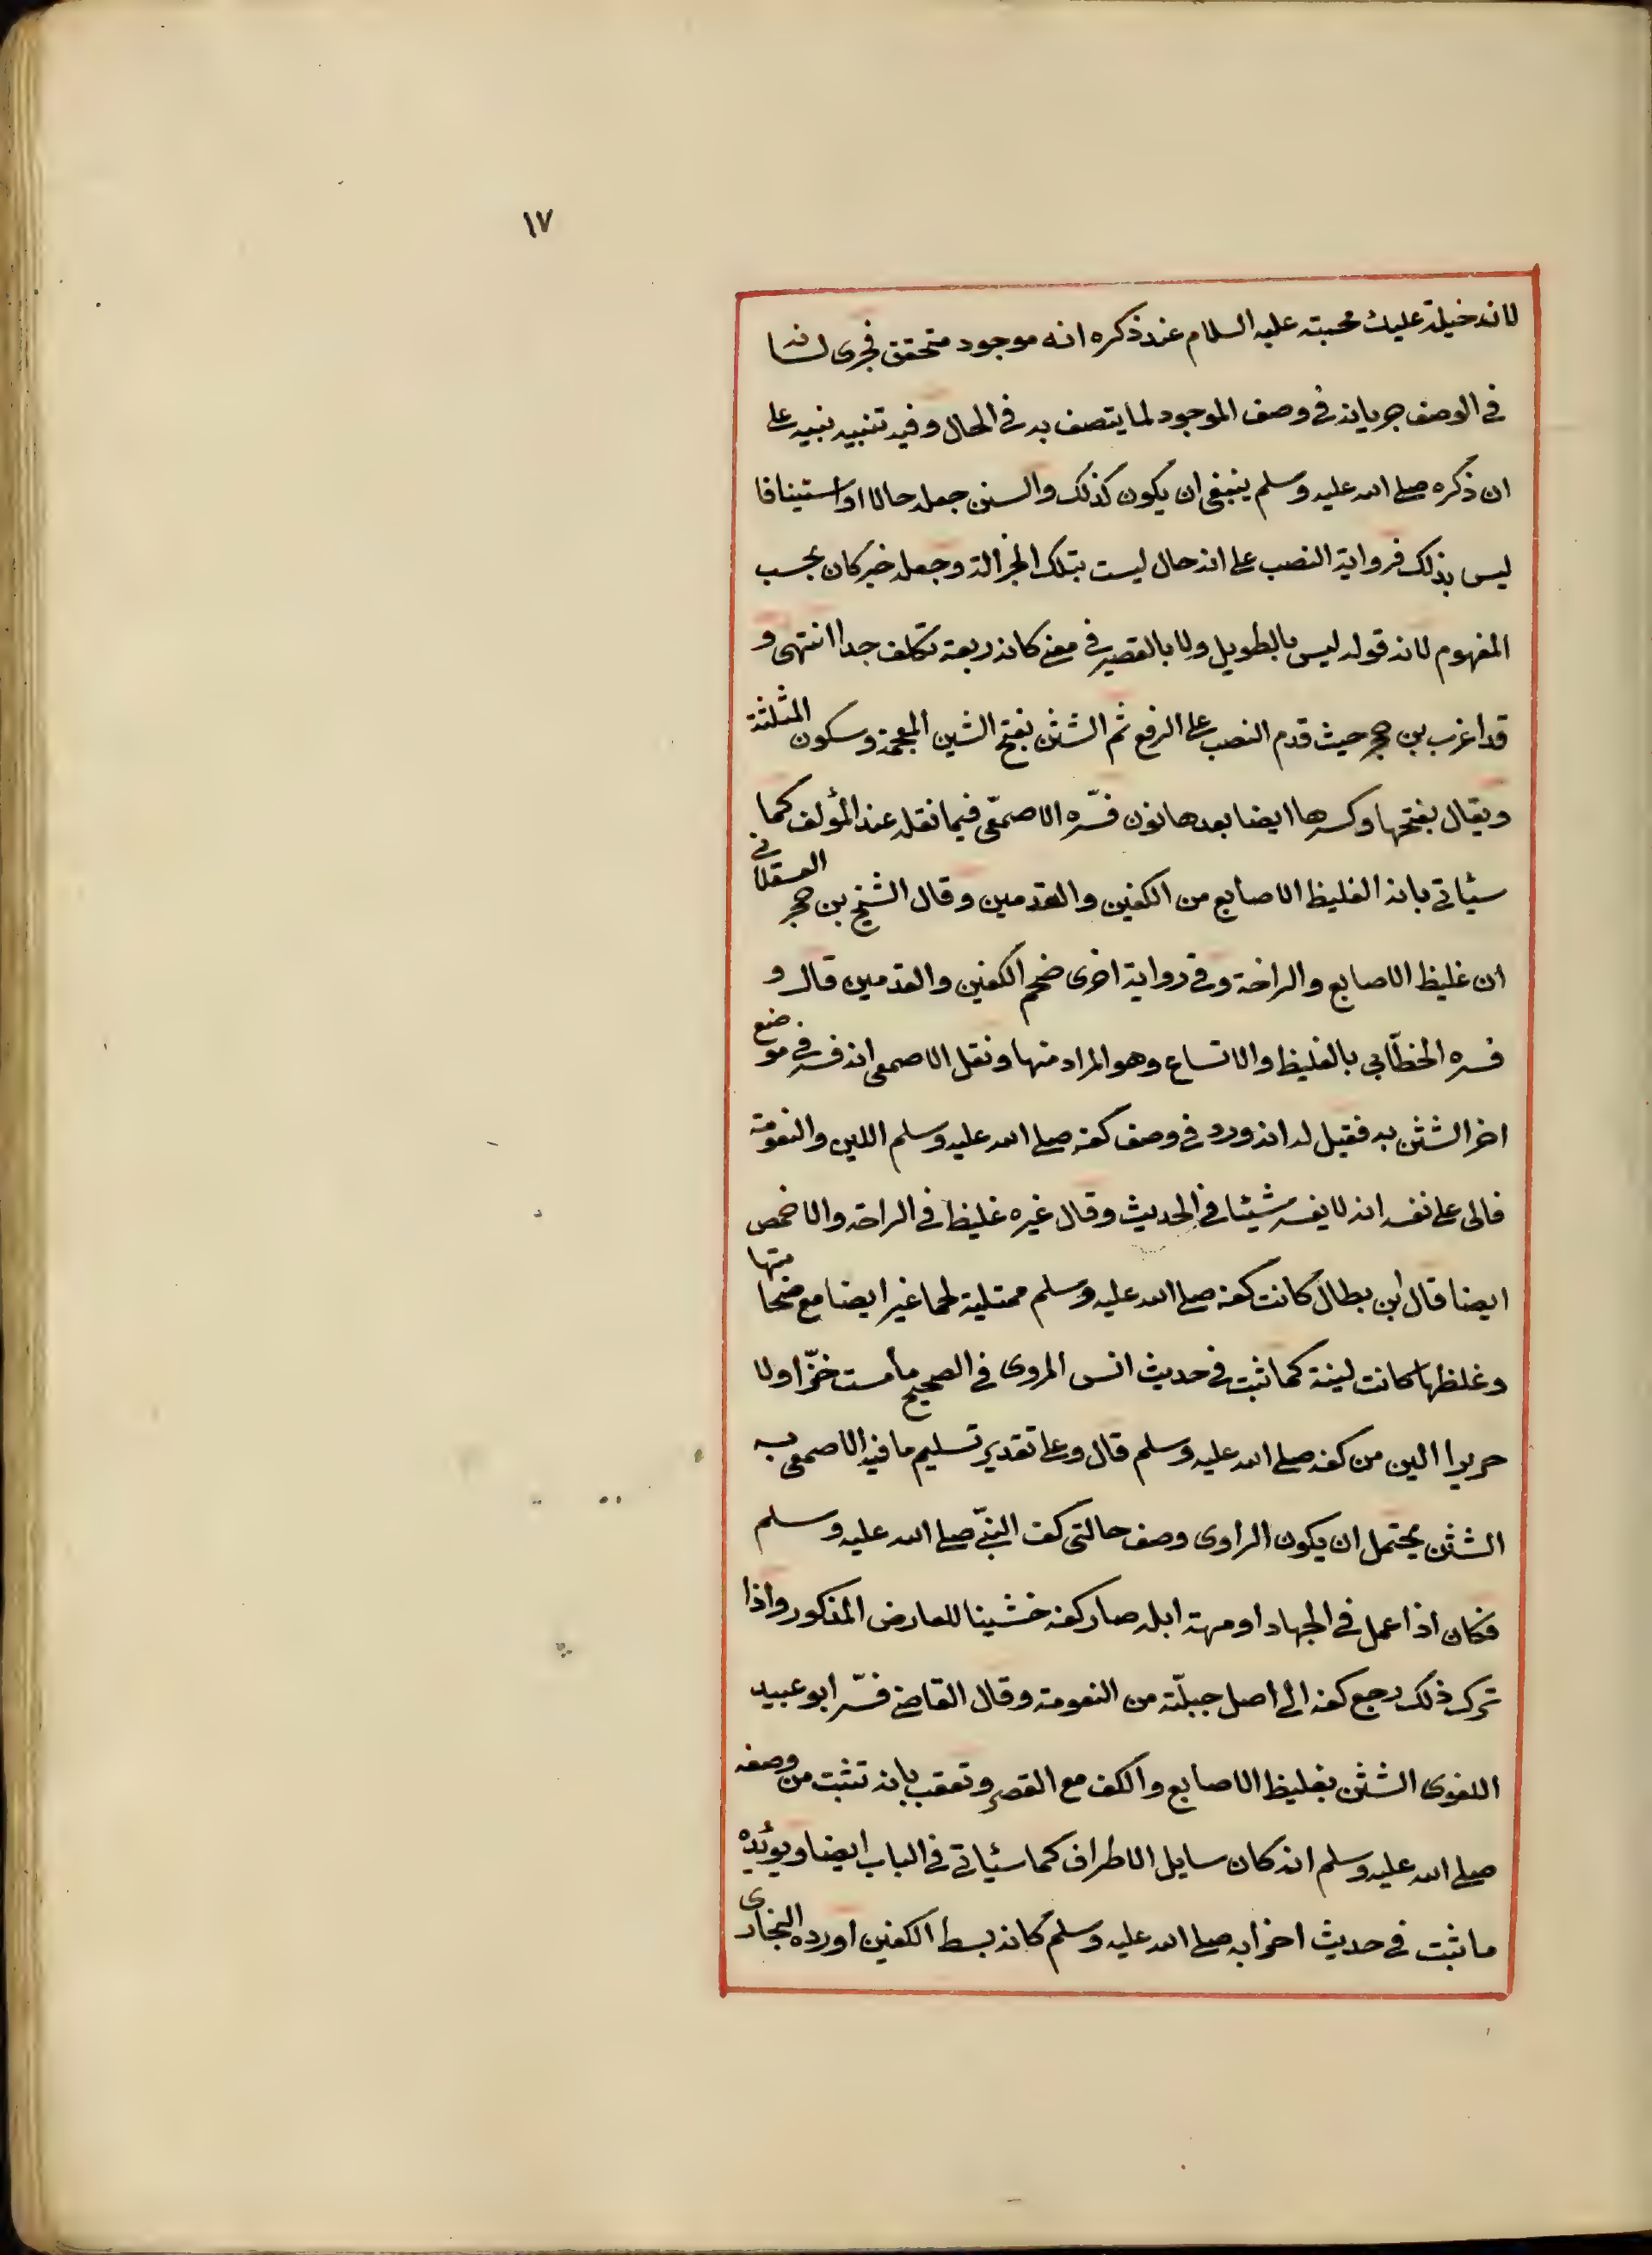 ١٧
لانه خيلة عليك محبته عليه السلام عند ذكره انه موجود متحقق فجرى لسانه
فى الوصف جريانه فى وصف الموجود لما يتصف به فى الحال وفيه تنبيه نبيه على
ان ذكره صلى الله عليه وسلم ينبغى ان يكون كذلك والسنن جعله حالا او استينافا
ليس بذلك فرواية النصب على انه حال ليست بتلك الجزالة وجعله خبر كان بحسب
المفهوم لانه قوله ليس بالطويل ولا بالقصير فى معنى كانه ربعة تكلف جدا انتهى و
قد اغرب بن حجر حيث قدم النصب على الرفع ثم الشثن بفتح الشين المعجمة وسكون المثلثة
ويقال بفتحها وكسرها ايضا بعدها نون فسّره الاصمعّى فيما نقله عنه المؤلف كما
سئاتى بانه الغليظ الاصابع من الكفين والقدمين وقال الشيخ بن حجر العسقلانى
ان غليظ الاصابع والراخة وفى رواية اخرى ضخم الكفين والقدمين قال و
فسره الخطّابى بالغليظ والاتساع وهو المراد منها ونقل الاصمعى انه فسر فى موضع
اخر الشثن به فقيل له انه ورد فى وصف كفه صلى الله عليه وسلم اللين والنعومة
فالى على نفسه انه لا يفسر شيئا فى الحديث وقال غيره غليظ فى الراحة والاخمص
ايضا قال ابن بطال كانت كفه صلى الله عليه وسلم ممتلية لحما غير ايضا مع ضخامتها
وغلظها كانت لينة كما ثبت فى حديث انس المروى فى الصحيح مامست خزّا ولا
حريرا الين من كفه صلى الله عليه وسلم قال وعلى تقدير تسليم ما فيه الاصمعى به
الشثن يحتمل ان يكون الراوى وصف حالتى كف النبىّ صلى الله عليه وسلم
فكان اذا عمل فى الجهاد او مهنة ابله صار كفه خشينا للعارض المذكور واذا
ترك ذلك رجع كفه الى اصل جبلّته من النعومة وقال القاضى فسّر ابو عبيد
اللغوى الشثن بغليظ الاصابع والكف مع القصر وتعقب بانه تثبت من وصفه
صلى الله عليه وسلم انه كان سايل الاطراف كما سئاتى فى الباب ايضا ويؤيّده
ما ثبت فى حديث اخر انه صلى الله عليه وسلم كانه بسط الكفين اورده البخارى